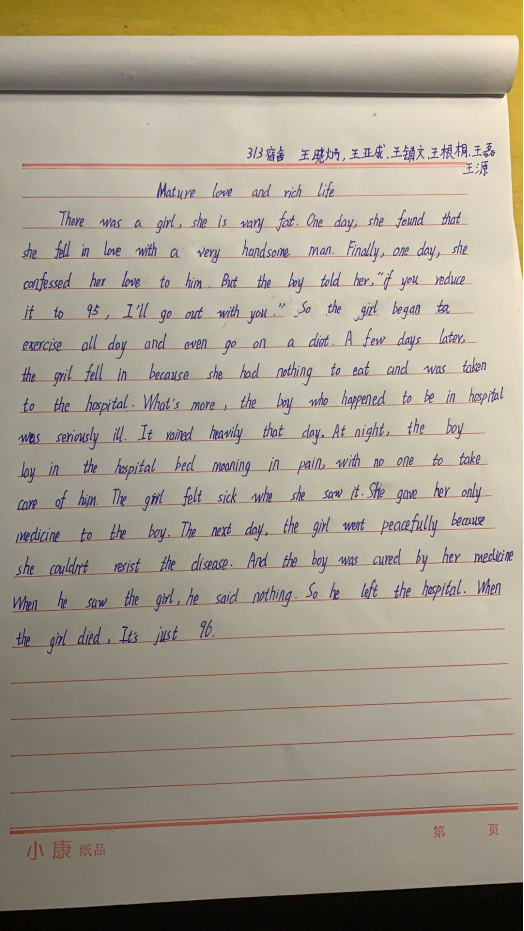 313宿舍 王晓炳,王亚成.王镇文.王根相.王磊
王源
Mature love and rich life
There was a girl, she is vary fat. One day, she found that
she fell in love with a very handsome man. Finally, one day, she
confessed her love to him. But the boy told her, "if you reduce
it to 95, I'll go out with you." So the girl began to
exercise all day and even go on a diot. A few days later,
the gril fell in because she had nothing to eat and was taken
to the hospital. What's more, the boy who happened to be in hospital
was seriously ill. It rained heavily that day, At night, the boy
lay in the hospital bed moaning in pain, with no one to take
care of him. The girl felt sick whe she saw it. She gave her only
medicine to the boy. The next day, the girl went peacefully because
she couldn't resist the disease. And the boy was cured by her medicine
When he saw the girl, he said nothing. So he left the hospital. When
the girl died, It's just 96.
小康 纸品 第 页